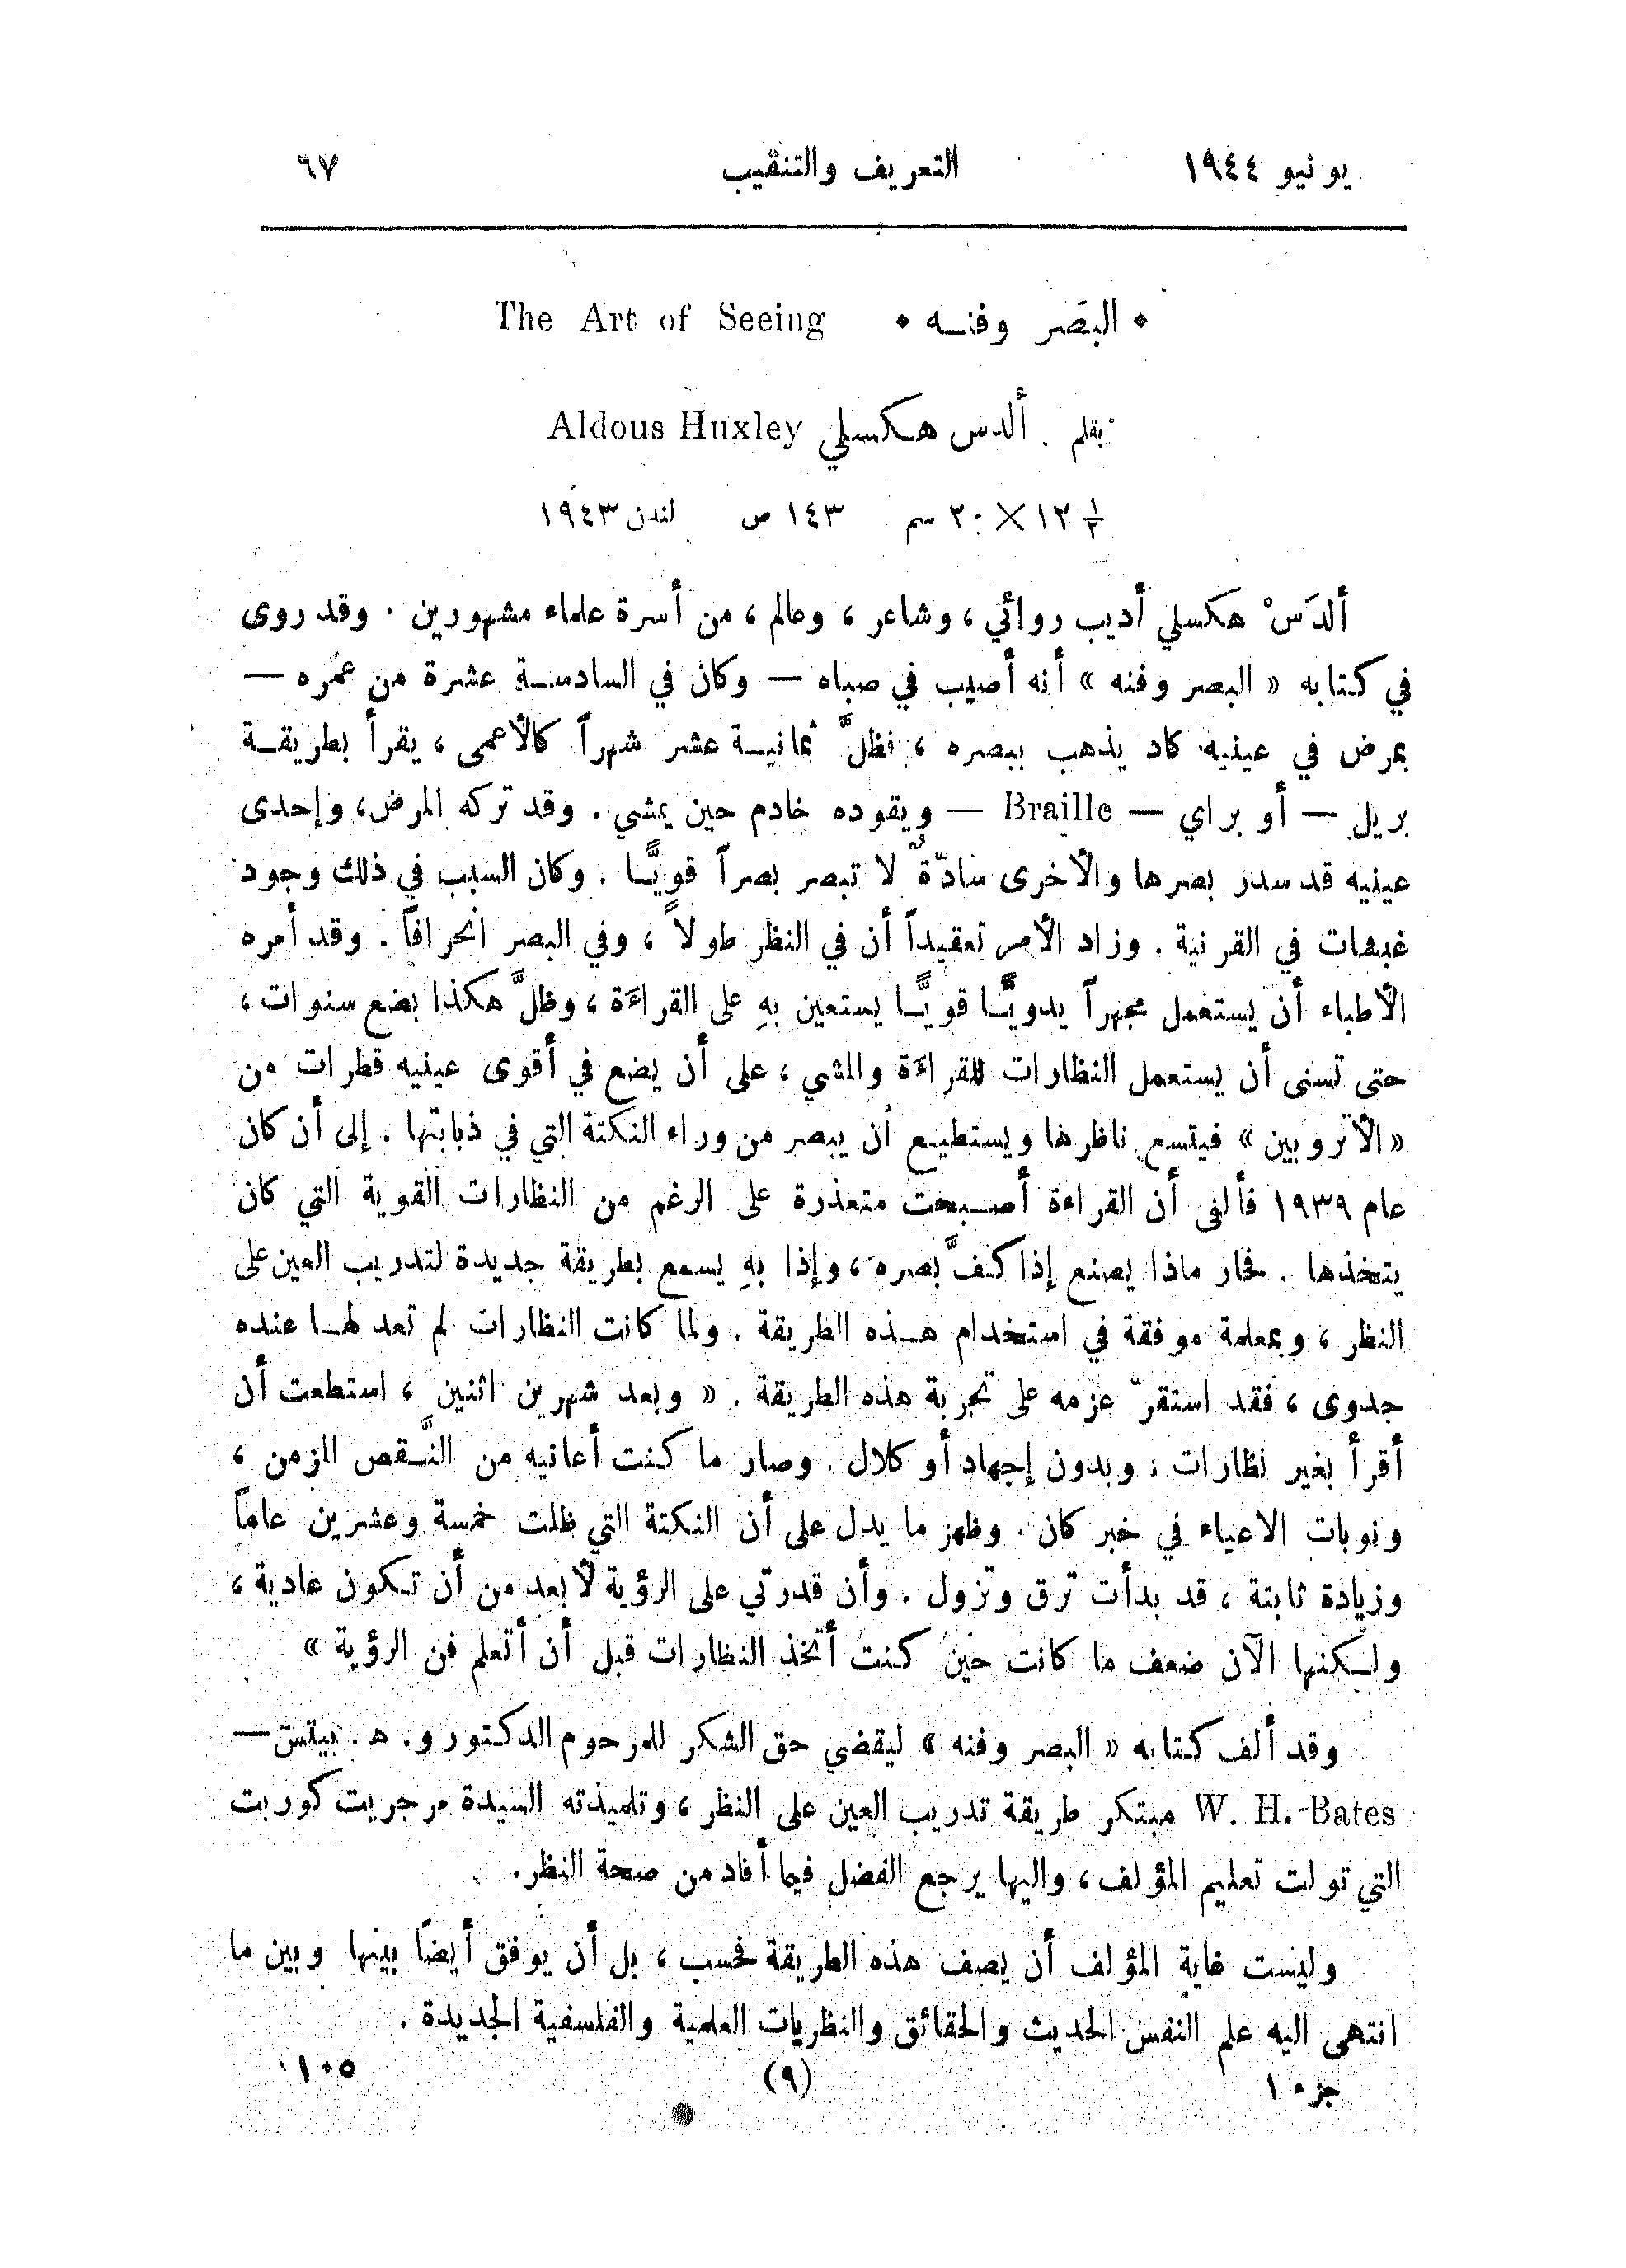 يونيو ١٩٤٤ التعريف والتنقيب ٦٧
• البصَر وفنـه • The Art of Seeing
بقلم ألدس هكسلي Aldous Huxley
١/٢ ١٢ × ٢٠ سم ١٤٣ ص لندن ١٩٤٣
ألدَسْ هكسلي أديب روائي، وشاعر، وعالم، من أسرة علماء مشهورين. وقد روى
في كتابه « البصر وفنه » أنه أصيب في صباه — وكان في السادسـة عشرة من عمره —
بمرض في عينيه كاد يذهب ببصره، فظلَّ ثمانيـة عشر شهراً كالأعمى، يقرأ بطريقـة
بريل — أو براي — Braille — ويقوده خادم حين يمشي. وقد تركه المرض، وإحدى
عينيه قد سدر بصرها والأخرى سادّةٌ لا تبصر بصراً قويًّـا. وكان السبب في ذلك وجود
غبهات في القرنية. وزاد الأمر تعقيداً أن في النظر طولاً، وفي البصر انحرافاً. وقد أمره
الأطباء أن يستعمل مجهراً يدويًّـا قويًّـا يستعين بهِ على القراءَة، وظلَّ هكذا بضع سنوات،
حتى تسنى أن يستعمل النظارات للقراءَة والمشي، على أن يضع في أقوى عينيه قطرات من
« الأتروبين » فيتسع ناظرها ويستطيـع أن يبصر من وراء النكتة التي في ذبابتها. إلى أن كان
عام ١٩٣٩ فألفى أن القراءة أصـبحت متعذرة على الرغم من النظارات القوية التي كان
يتخذها. فحار ماذا يصنع إذا كفَّ بصره، وإذا بهِ يسمع بطريقة جديدة لتدريب العين على
النظر، وبمعلمة موفقة في استخدام هـذه الطريقة. ولما كانت النظارات لم تعد لهـا عنده
جدوى، فقد استقرّ عزمه على تجربة هذه الطريقة. « وبعد شهرين اثنين، استطعت أن
أقرأ بغير نظارات؛ وبدون إجهاد أو كلال. وصار ما كنت أعانيه من النَّـقص المزمن،
ونوبات الاعياء في خبر كان. وظهر ما يدل على أن النكتة التي ظلت خمسة وعشرين عاماً
وزيادة ثابتة، قد بدأت ترق وتزول. وأن قدرتي على الرؤية لأبعد من أن تكون عادية،
ولـكنها الآن ضعف ما كانت حين كنت أتخذ النظارات قبل أن أتعلم فن الرؤية »
وقد ألف كتابه « البصر وفنه » ليقضي حق الشكر للمرحوم الدكتور و. هـ. بيتس —
W. H. Bates مبتكر طريقة تدريب العين على النظر، وتلميذته السيدة مرجريت كوربت
التي تولت تعليم المؤلف، واليها يرجع الفضل فيما أفاد من صحة النظر.
وليست غاية المؤلف أن يصف هذه الطريقة فحسب، بل أن يوفق أيضاً بينها وبين ما
انتهى اليه علم النفس الحديث والحقائق والنظريات العلمية والفلسفية الجديدة.
جزء ١ (٩) ١٠٥